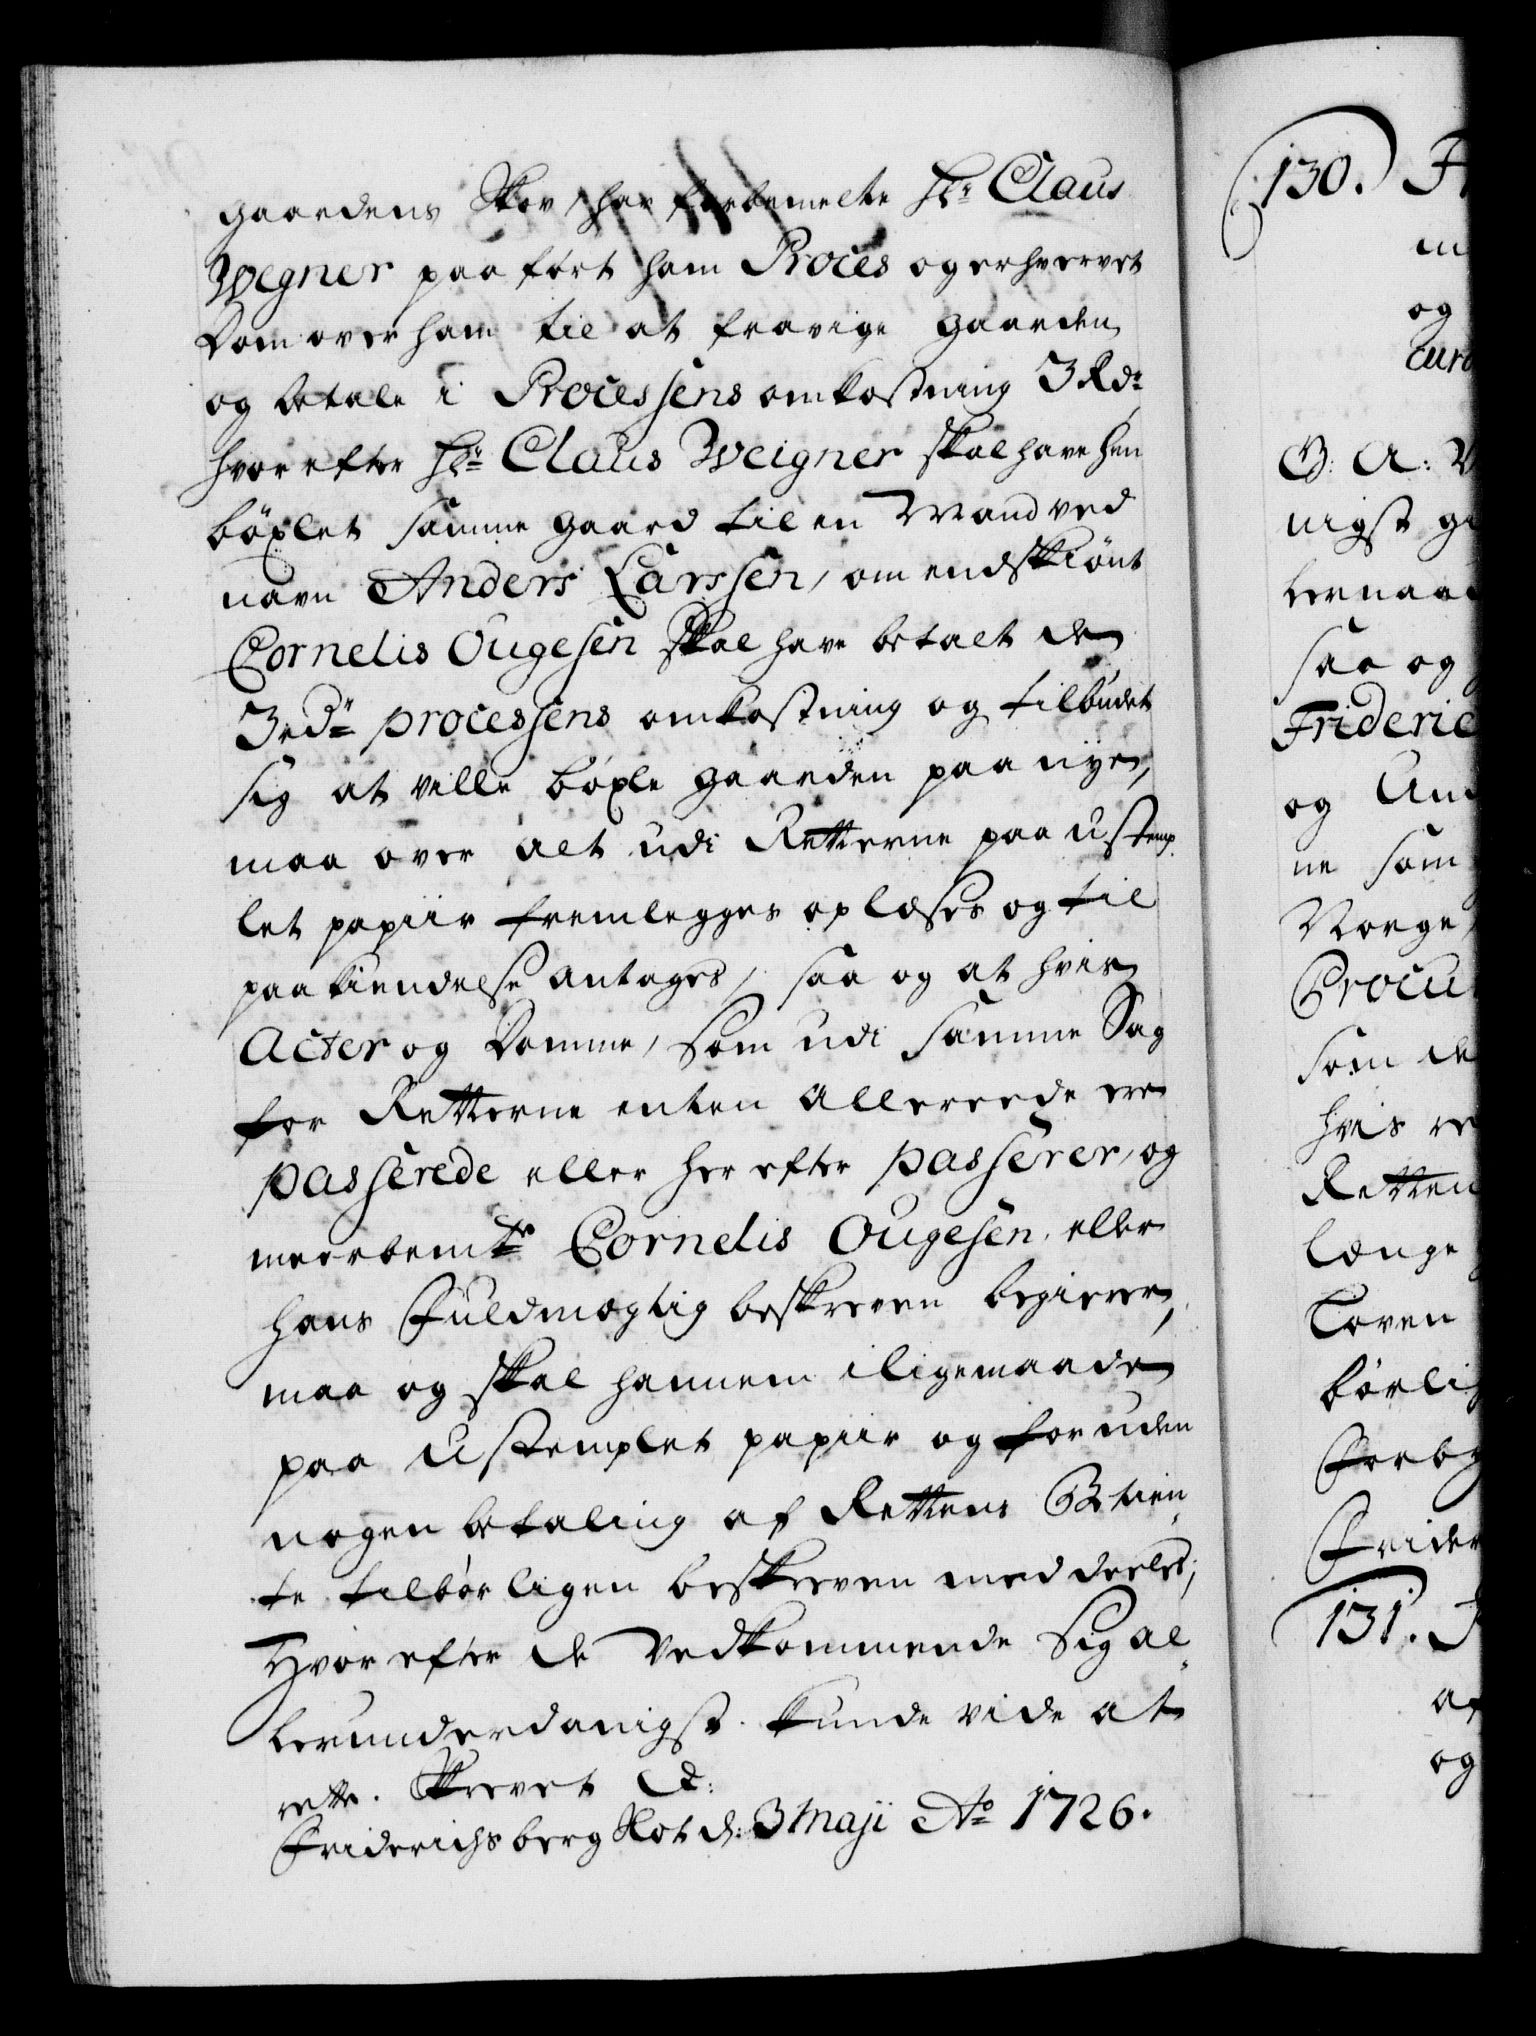 gaardens Skov, har forbemelte Hr: Claus
Wegner paaført ham Proces og erhvervet
Dom over ham til at fravige gaarden
og betale i Processens omkostning 3 Rdr
hvorefter Hr: Claus Weigner skal have hen
böxlet samme gaard til en Mand ved
navn Anders Larssen, omendskiönt
Cornelis Ougesen skal have betalt de
3 rdr processens omkostning og tilbudet
sig at ville böxle gaarden paa nye,
maa over alt udi Retterne paa ustemp
let papiir fremlegges oplæses og til
paakiendelse antages, saa og at hvis
Acter og Domme, som udi samme Sag
for Retterne enten allereede ere
passerede eller her efter passerer, og
meerbemte Cornelis Ougesen eller
hans Fuldmægtig beskreven begierer,
maa og skal hannem iligemaade
paa ustemplet papiir og foruden
nogen betaling af Rettens Betien,,
te tilbörligen beskreven meddeeles;
Hvorefter de Vedkommende Sig al,,
lerunderdanigst kunde vide at
rette. Skrevet &:
Friderichsberg Slot d: 3 Maji Ao 1726.
(130.)
og
G: A:
nigst
saa og
og
ne som
Norge,
som de
hvis
Retten
længe
Loven
131.
og